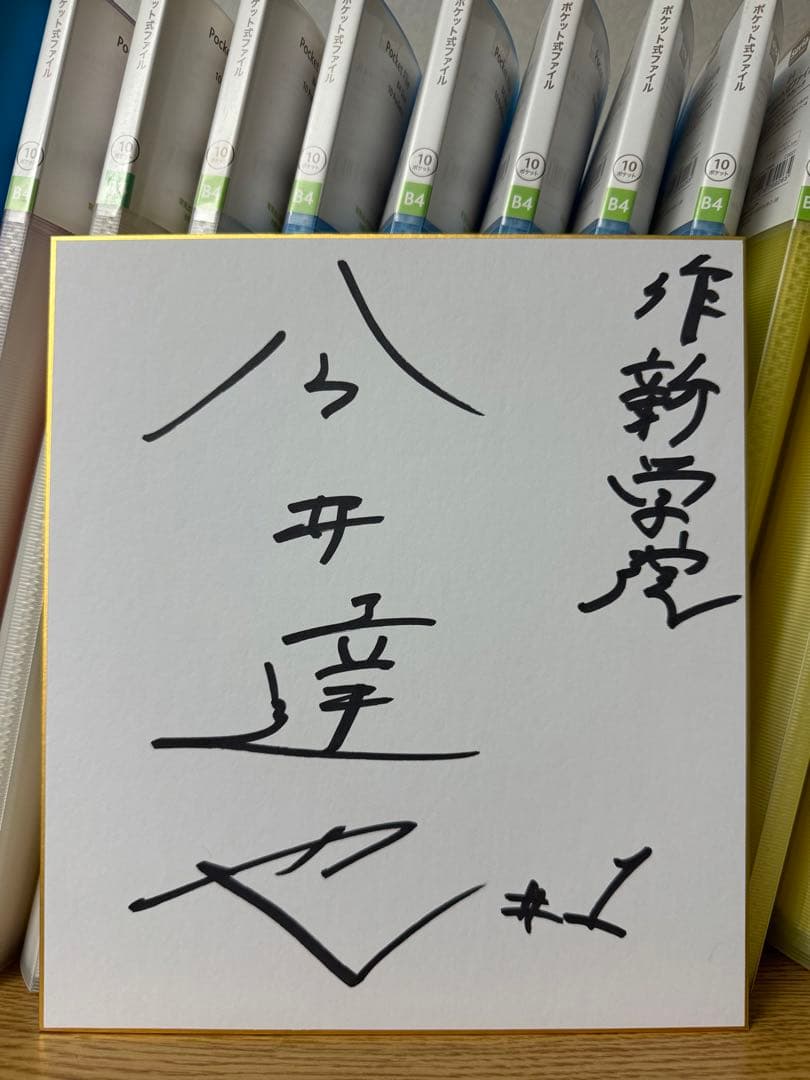 ポケット式ファイル
ポケット式ファイル
ポケット式ファイル
ポケット式ファイル
ポケット式ファイル
ポケット式ファイル
ポケット式ファイル
ポケット式ファイル
Pocket
10
10
10
10
10 ポケット
10 ポケット
10 ポケット
10 ポケット
B4
B4
B4
B4
B4
B4
B4
B4
作新学院
今井達也
#1